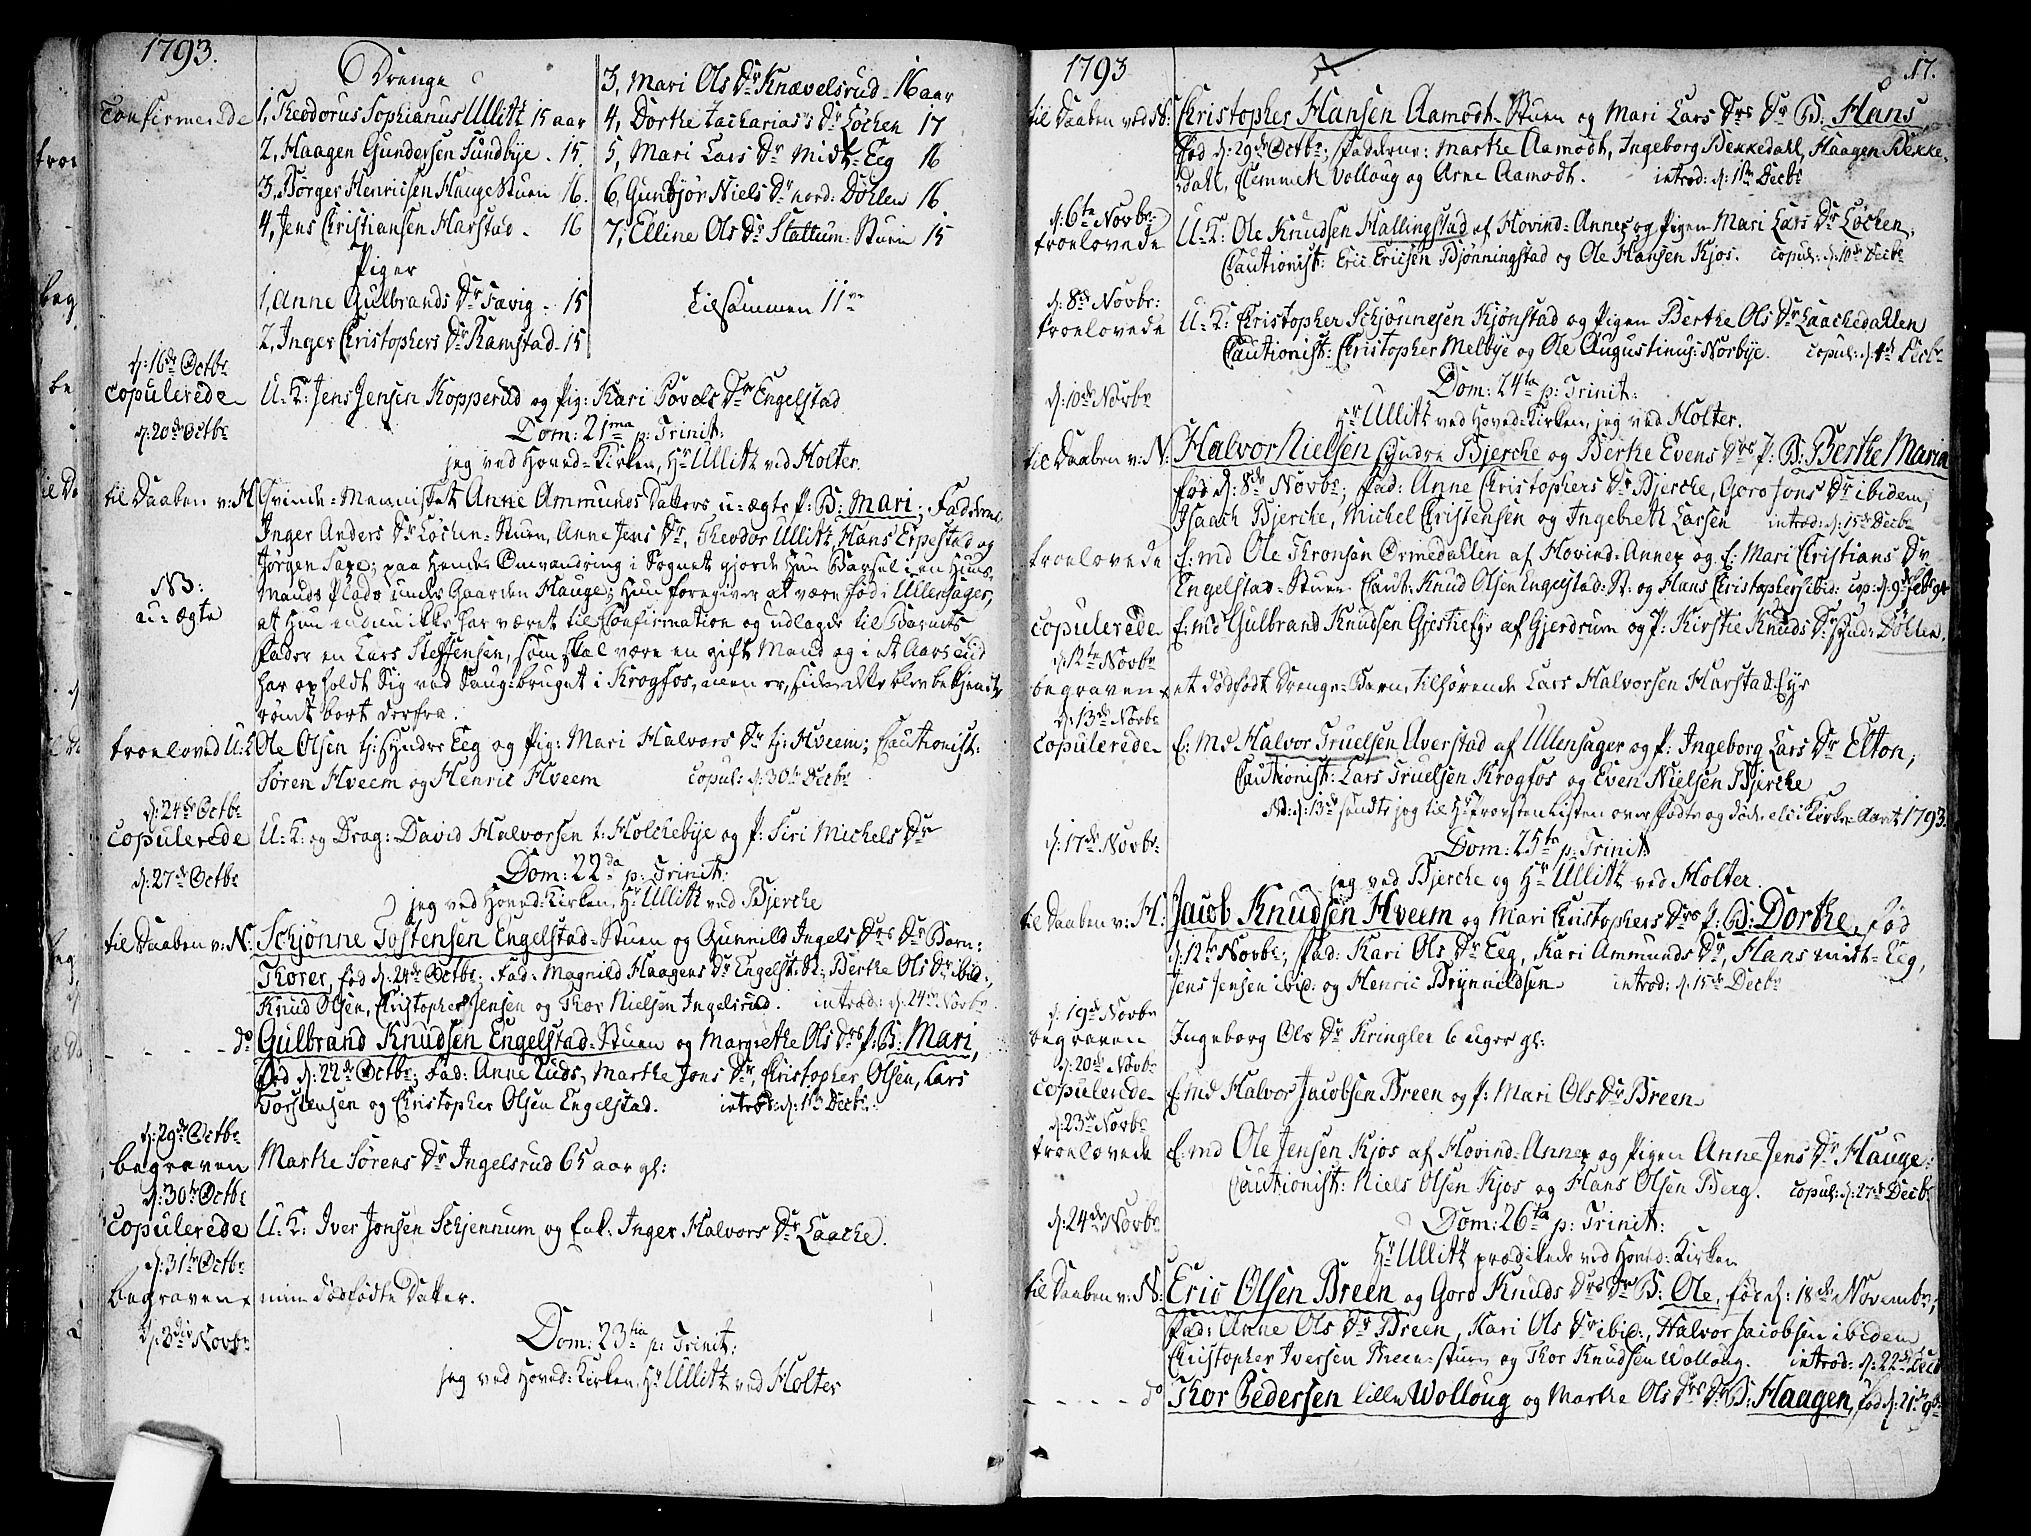 1793.
Confirmerede
Drenge
1, Theodorus Sophianus Ullitz 15 aar
2, Haagen Gundersen Sundbye - 15
3, Børger Henricsen Hauge Stuen 16.
4, Jens Christiansen Harstad - 16
Piger
1, Anne Gulbrands Dr Sævig - 15
2, Inger Christophers Dr Ramstad - 15
3, Mari Ols Dr Knævelsrud - 16 aar
4, Dorthe Zacharias's Dr Løchen 17
5, Mari Lars Dr Midt-Eeg 16
6, Gunbjør Niels Dr nord: Døhlen 16
7, Elline Ols Dr Stattum-Stuen 15
tilsammen 11ve
d: 16de Octbr
copulerede
U: K: Jens Jensen Kopperud og Pig: Kari Povels Dr Engelstad
d: 20de Octbr
Dom: 21ma p: Trinit:
jeg ved Hoved-Kirken, Hr Ullitz ved Holter.
til Daaben v: H
Qvinde-Mennisket Anne Ammunds Datters u-ægte P: B: Mari; Fadderne
Inger Anders Dr Løchen-Stuen, Anne Jens Dr, Theodor Ullitz, Hans Erpestad og
Jørgen Saxe; paa hendes Omvandring i Sognet gjorde hun Barsel i en Huus-
NB:
u-ægte
mands Plads under Gaarden Hauge; hun foregiver at være fød i Ullensager,
at hun endnu ikke har været til Confirmation og udlagde til Barnets
Fader en Lars Steffensen, som skal være en gift Mand og i et Aars tiid
har opholdt sig ved Saug-bruget i Krogfos, men er, siden dette blev bekjendt,
rømt bort derfra.
troeloved U: K
Ole Olsen tj: Hyndre Eeg og Pig: Mari Halvors Dr tj: Hveem; Cautionist:
Søren Hveem og Henric Hveem copul: d: 30te Decbr
d: 24de Octbr
copulerede
U: K: og Drag: David Halvorsen t: Holchebye og P: Siri Michels Dr
d: 27de Octbr
Dom: 22da p: Trinit:
jeg ved Hoved-Kirken, Hr Ullitz ved Bjerche
til Daaben v: N:
Schjønne Tostensen Engelstad-Stuen og Gunnild Ingels Drs Dr Barn:
Thorer, fød d: 24de Octbr; Fad: Magnild Haagens Dr Engelst: St:, Berthe Ols Dr ibid:,
Knud Olsen, Christopher Jensen og Thor Nielsen Ingelsrud. introd: d: 24de Novbr
do
Gulbrand Knudsen Engelstad-Stuen og Margrethe Ols Drs P: B: Mari,
fød d: 22de Octbr; Fad: Anne Ruds, Marthe Jons Dr, Christopher Olsen, Lars
Torstensen og Christopher Olsen Engelstad. introd: d: 1te Decbr:
d: 29de Octbr
begraven
Marthe Sørens Dr Ingelsrud 65 aar gl:
d: 30te Octbr
copulerede
U: K: Iver Jonsen Schjennum og Enk: Inger Halvors Dr Laache.
d: 31te Octbr
begraven
min dødfødte Datter.
d: 3die Novbr
Dom: 23tia p: Trinit:
jeg ved Hoved-Kirken, Hr Ullitz ved Holter
1793
17.
til Daaben ved N:
Christopher Hansen Aamodt-Stuen og Mari Lars Drs Dr B: Hans
fød d: 29de Octbr; Fadderne: Marthe Aamodt, Ingeborg Bekkedahl, Haagen Bekke-
dahl, Clemmet Volloug og Arne Aamodt. introd: d: 1te Decbr
d: 6te Novbr:
troelovede
U: K: Ole Knudsen Hallingstad af Hovind-Annex og Pigen Mari Lars Dr Løchen,
Cautionist: Eric Ericsen Bjønningstad og Ole Hansen Kjos. copul: d: 10de Decbr
d: 8de Novbr:
troelovede
U: K: Christopher Schjønnesen Kjønstad og Pigen Berthe Ols Dr Laachedahlen
Cautionist: Christopher Melbye og Ole Augustinus: Norbye. copul: d: Decbr
d: 10de Novbr
Dom: 24ta p: Trinit:
Hr Ullitz ved Hoved-Kirken, jeg ved Holter.
til Daaben v: N:
Halvor Nielsen Hyndre Bjerche og Berthe Evens Drs P: B: Berthe Maria
fød d: 8de Novbr; Fad: Anne Christophers Dr Bjerche, Goro Jons Dr ibidem,
Isaach Bjerche, Michel Christensen og Ingebreth Larsen introd: d: 15de Decbr
troelovede
E: md Ole Thronsen Ørmedahlen af Hovind-Annex og E: Mari Christians Dr
Engelstad-Stuen Caut: Knud Olsen Engelstad-St: og Hans Christophers: ibid: cop: d: 9de Febr 94
copulerede
E: md Gulbrand Knudsen Gjestiefyr af Gjerdrum og P: Kirstie Knuds Dr synd: Døhlen.
d: 12te Novbr
begraven
et dødfødt Drenge-Barn, tilhørende Lars Halvorsen Harstad-Eye
d: 13de Novbr
copulerede
E: Md Halvor Truelsen Averstad af Ullensager og P: Ingeborg Lars Dr Elton,
Cautionist: Lars Truelsen Krogfos og Even Nielsen Bjerche
NB: d: 13de sendte jeg til Hr Provsten Listen over fødte og døde etc i Kirke-Aaret 1793.
d: 17de Novbr:
Dom: 25ta p: Trinit:
jeg ved Bjerche og Hr Ullitz ved Holter.
til Daaben v: H:
Jacob Knudsen Hveem og Mari Christophers Drs P: B: Dorthe, fød
d: 12te Novbr; Fad: Kari Ols Dr Eeg, Kari Ammunds Dr, Hans midt-Eeg,
Jens Jensen ibid: og Henric Brynnildsen introd: d: 15de Decbr
d: 19de Novbr
begraven
Ingeborg Ols Dr Kringler 6 uger gl:
d: 20de Novbr
copulerede
E: md Halvor Jacobsen Breen og P: Mari Ols Dr Breen
d: 23de Novbr
troelovede
E: md Ole Jensen Kjos af Hovind-Annex og Pigen Anne Jens Dr Hauge:
Cautionist: Niels Olsen Kjos og Hans Olsen Berg. copul: d: 27de Decbr
d: 24de Novbr
Dom: 26ta p: Trinit:
Hr Ullitz prædikede ved Hoved-Kirken
til Daaben v: N:
Eric Olsen Breen og Goro Knuds Drs Dr B: Ole, fød d: 18de Novembr;
Fad: Anne Ols Dr Breen, Kari Ols Dr ibid:, Halvor Jacobsen ibidem
Christopher Iversen Breen-stuen og Thor Knudsen Volloug. introd: d: 22de Decbr
do
Thor Pedersen lille Volloug og Marthe Ols Drs Dr B: Haagen, fød d: 21de 9br